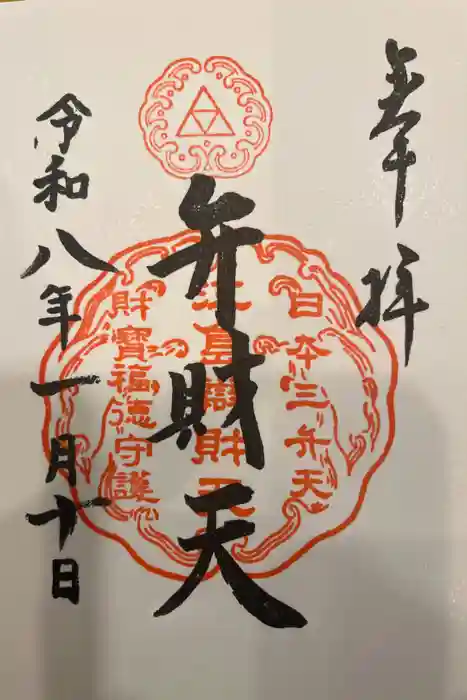 奉拝
日本三弁天
江島辯財天
弁財天
財寶福徳守護
令和八年一月十日